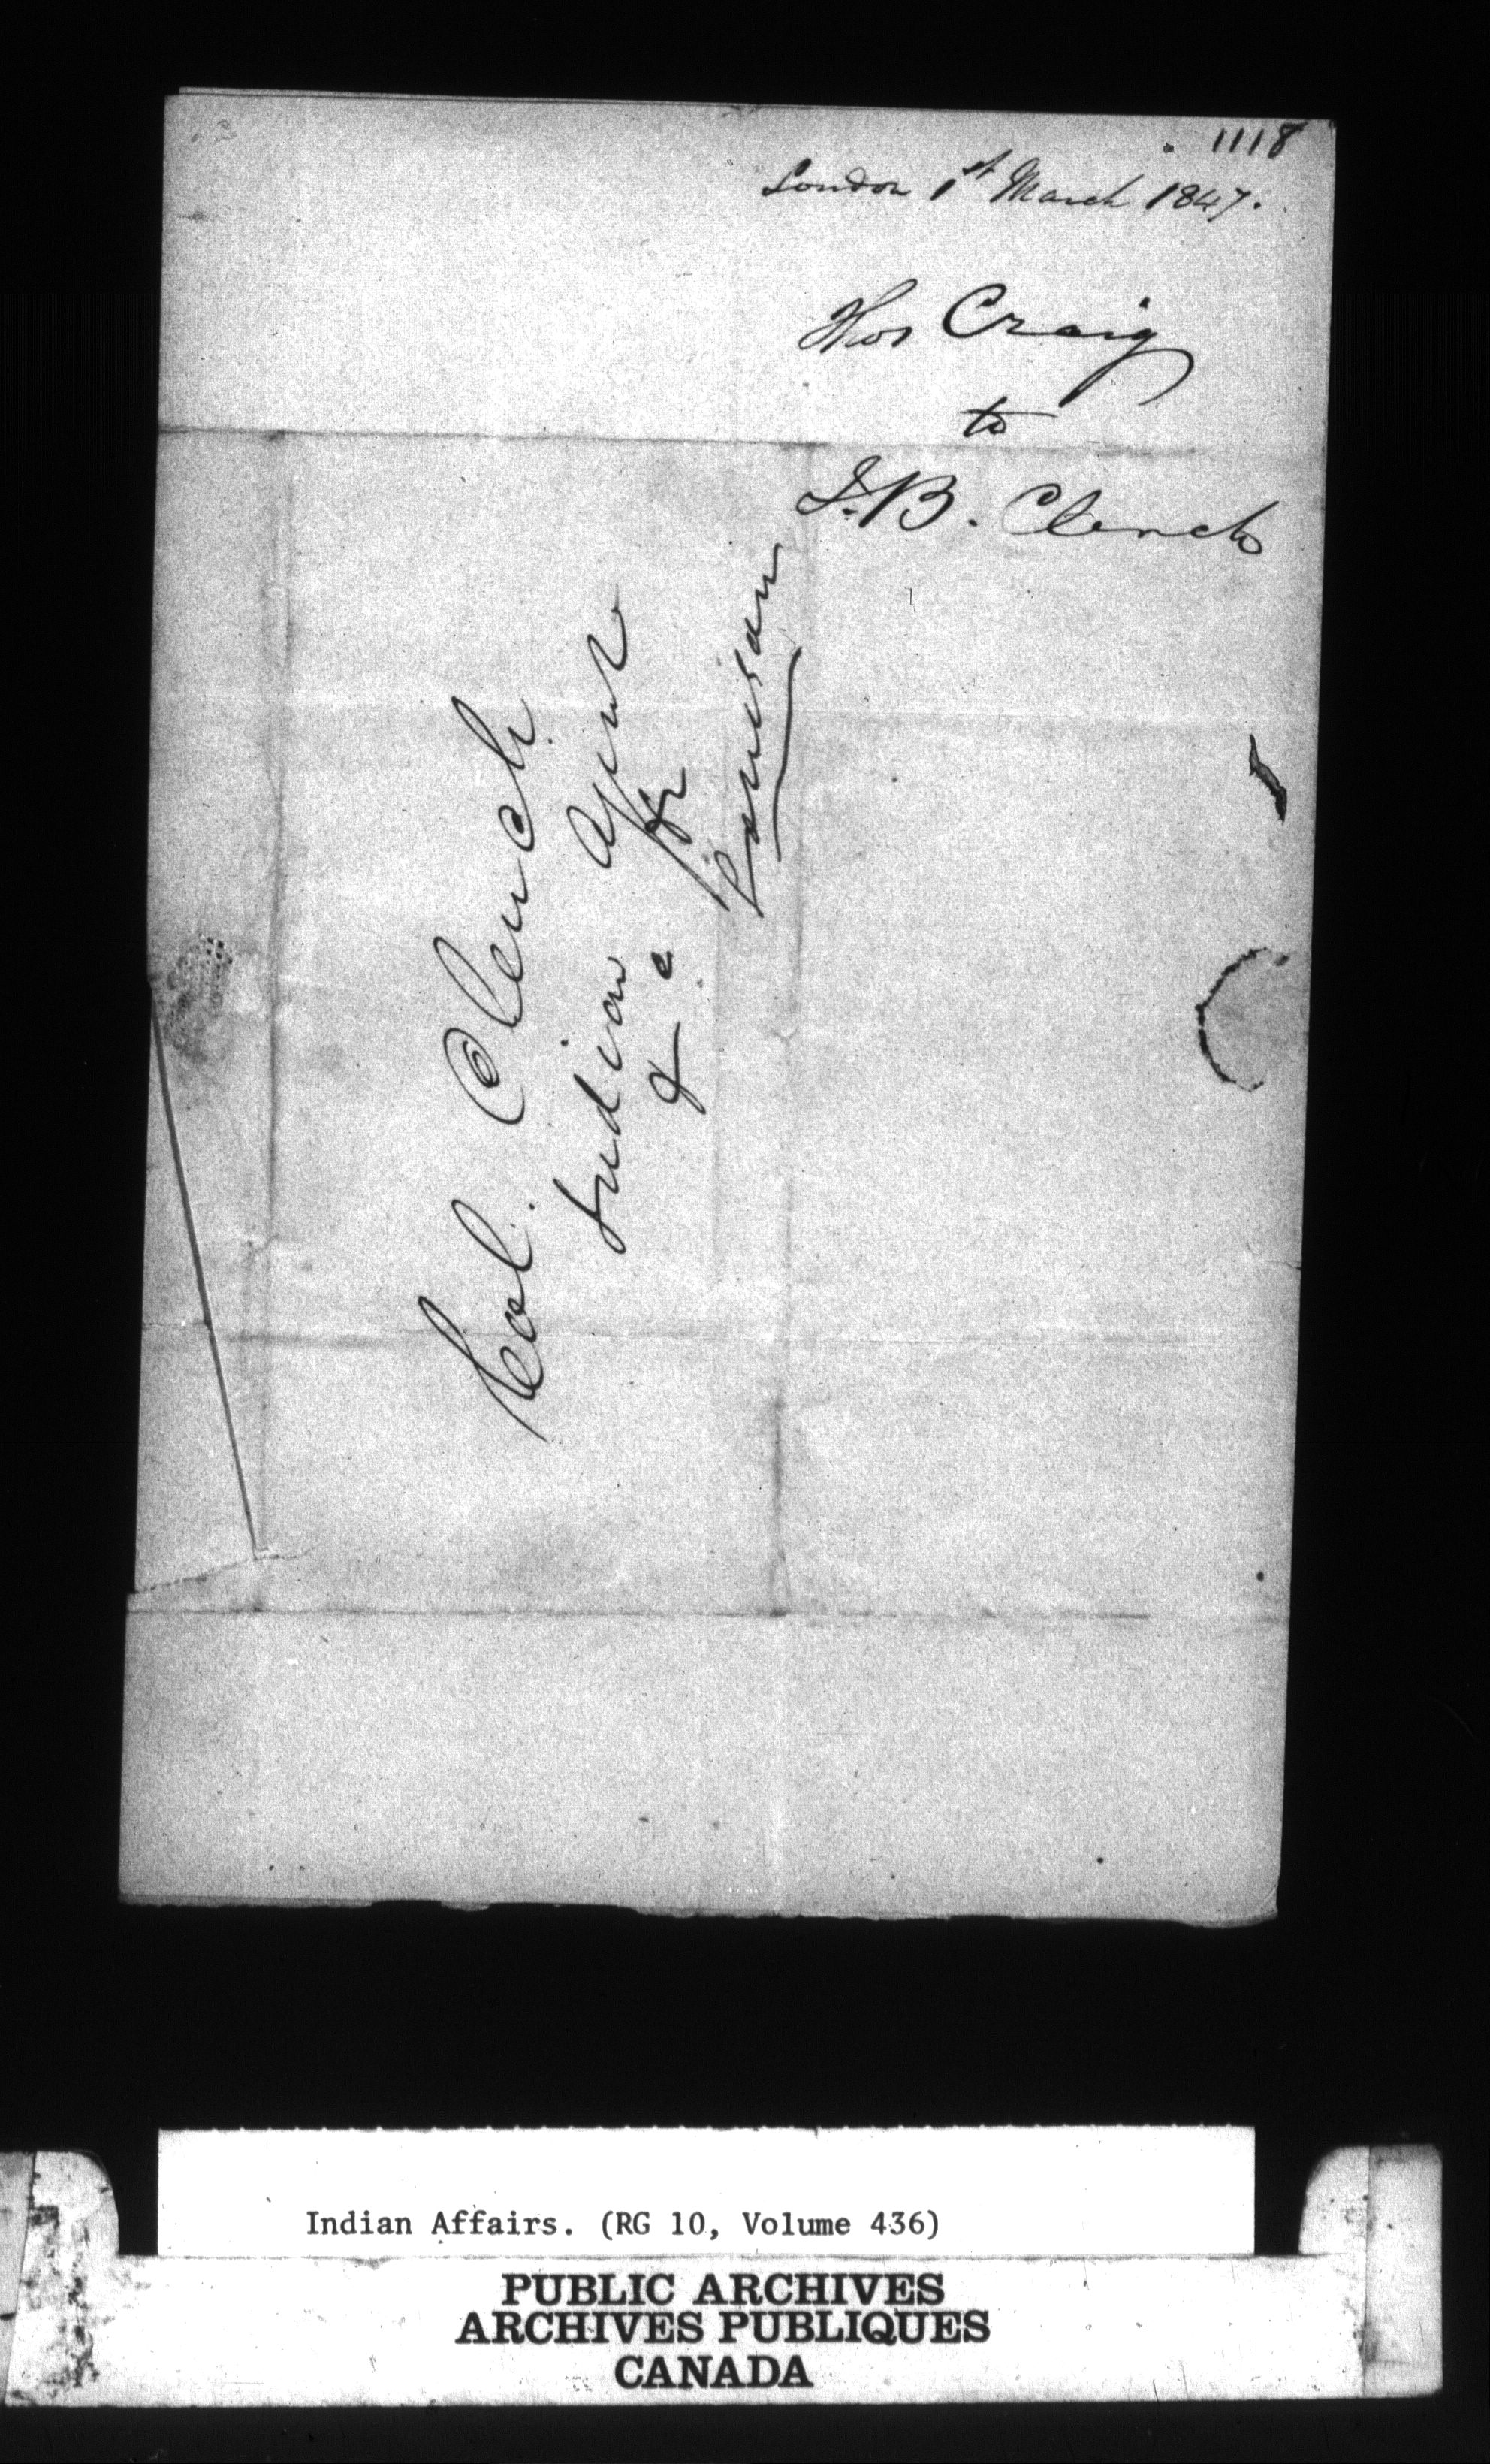 1118
London 1st March 1847.
Thos Craig
to
J.B. Clench
Col. Clench
Indian Agent
&c
Indian Affairs. (RG 10, Volume 436)
PUBLIC ARCHIVES
ARCHIVES PUBLIQUES
CANADA